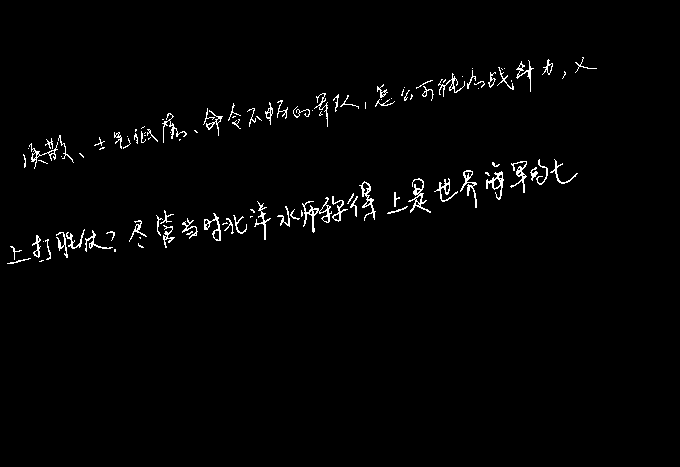 涣散、士气低落、命令不畅的军队,怎么可能有战斗力,又
上打胜仗?尽管当时北洋水师称得上是世界海军的七